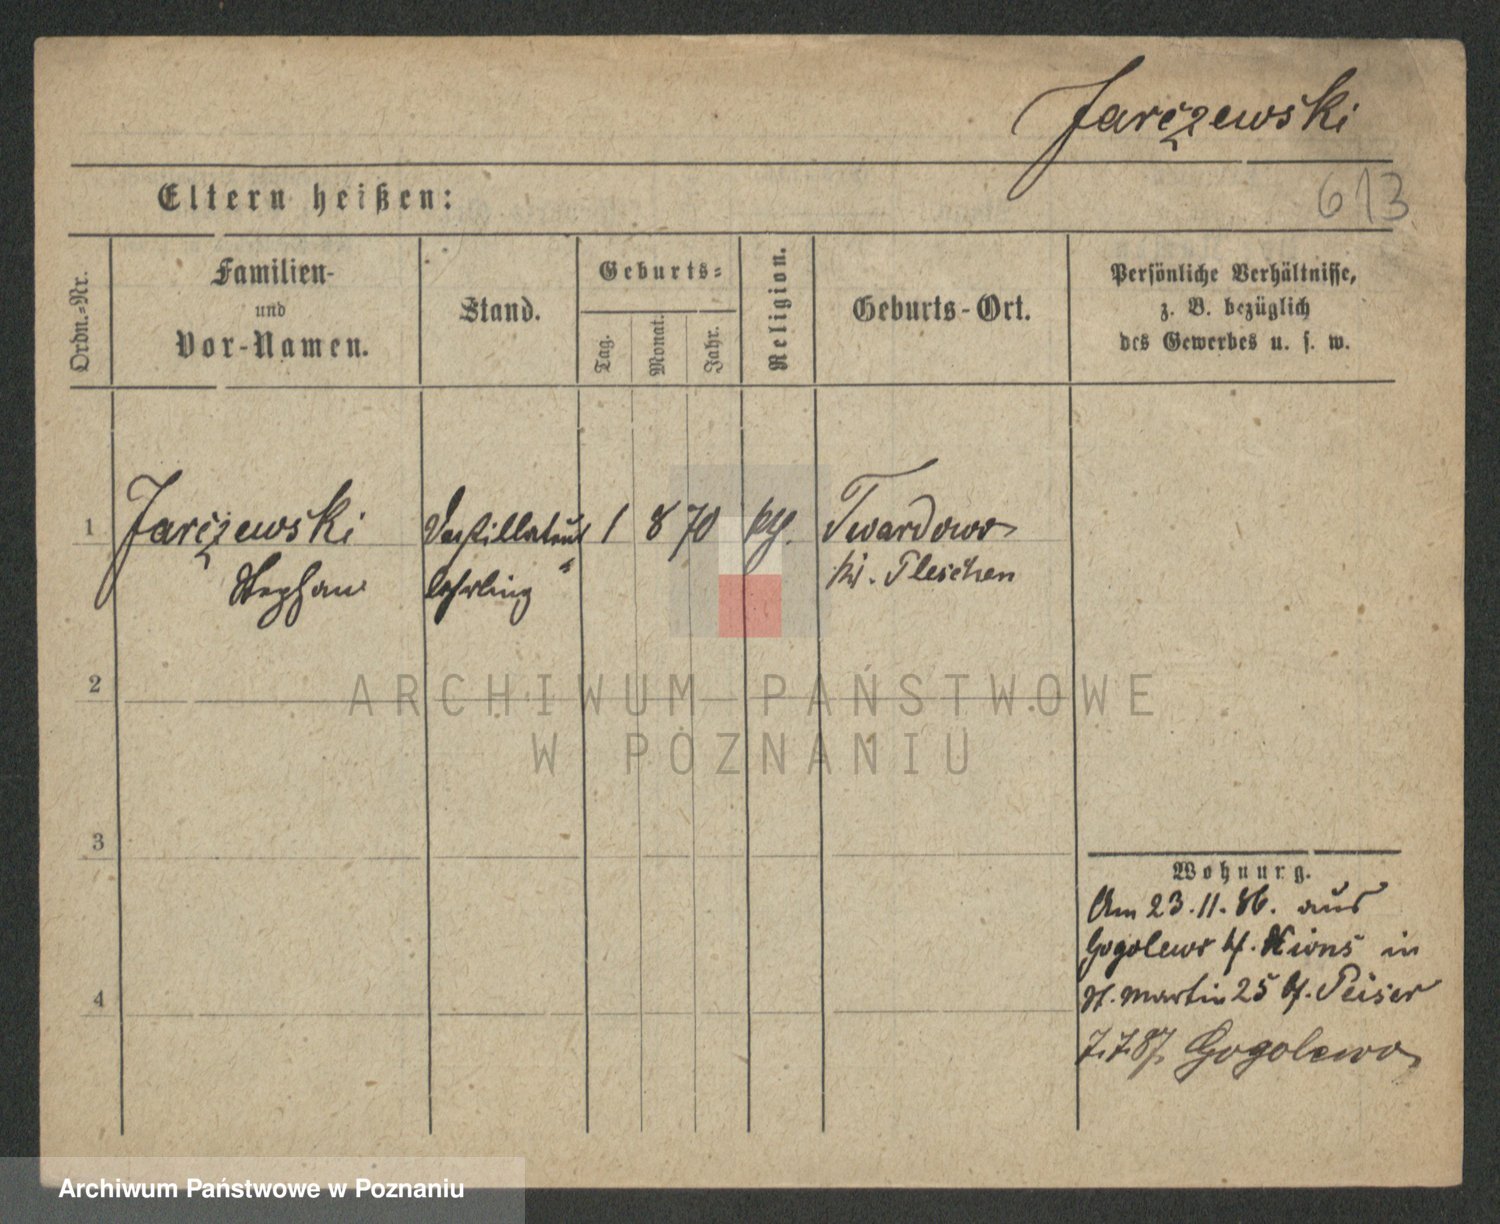 Jarczewski
Eltern heißen:
613
Ordn.-Nr.
Familien-
und
Vor-Namen.
Stand.
Geburts-
Tag.
Monat.
Jahr.
Religion.
Geburts-Ort.
Persönliche Verhältnisse,
z. B. bezüglich
des Gewerbes u. s. w.
1 Jarczewski Destillateur 1 8 70 Twardowo
Stephan lehrling Kr. Pleschen
2
3
4
Wohnung.
Am 23.11.86. aus
Gogolewo b/. Xions in
St. Martin 25 b/. Peiser
7.7.87. Gogolewo
ARCHIWUM PAŃSTWOWE
W POZNANIU
Archiwum Państwowe w Poznaniu